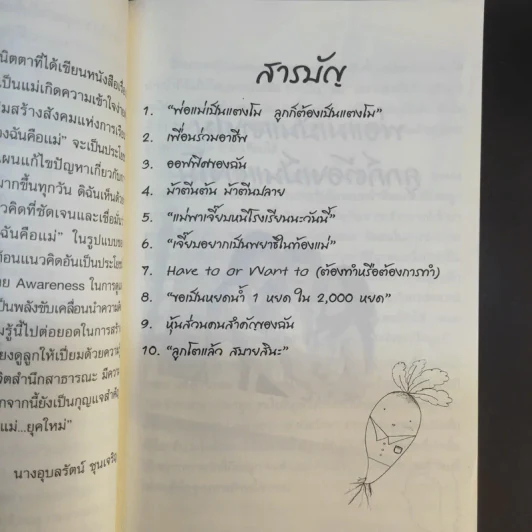 นิตตาที่ได้เขียนหนังสือ
เป็นแม่เกิดความเข้าใจ
สร้างสังคมแห่งการ
ฉันคือแม่” จะเป็น
แผนแก้ไขปัญหาเกี่ยวกับ
มากขึ้นทุกวัน ดิฉันเห็นด้วย
คิดที่ชัดเจนและเชื่อ
ฉันคือแม่” ในรูปแบบ
แนวคิดอันเป็น
Awareness ในการ
เป็นพลังขับเคลื่อนนำความ
รู้นี้ไปต่อยอดในการ
ดูลูกให้เปี่ยมด้วยความ
จิตสำนึกสาธารณะ มีความ
จากนี้ยังเป็นกุญแจสำคัญ
แม่...ยุคใหม่”
นางอุบลรัตน์
สารบัญ
1. “พ่อแม่เป็นแตงโม ลูกก็ต้องเป็นแตงโม”
2. เพื่อนร่วมอาชีพ
3. ออฟฟิศของฉัน
4. ม้าตีนต้น ม้าตีนปลาย
5. “แม่พาเจี๊ยบหนีโรงเรียนนะวันนี้”
6. “เจี๊ยบอยากเป็นพยาธิในท้องแม่”
7. Have to or Want to (ต้องทำหรือต้องการทำ)
8. “ขอเป็นหยดน้ำ 1 หยด ใน 2,000 หยด”
9. หุ้นส่วนคนสำคัญของฉัน
10. “ลูกโตแล้ว สบายสินะ”